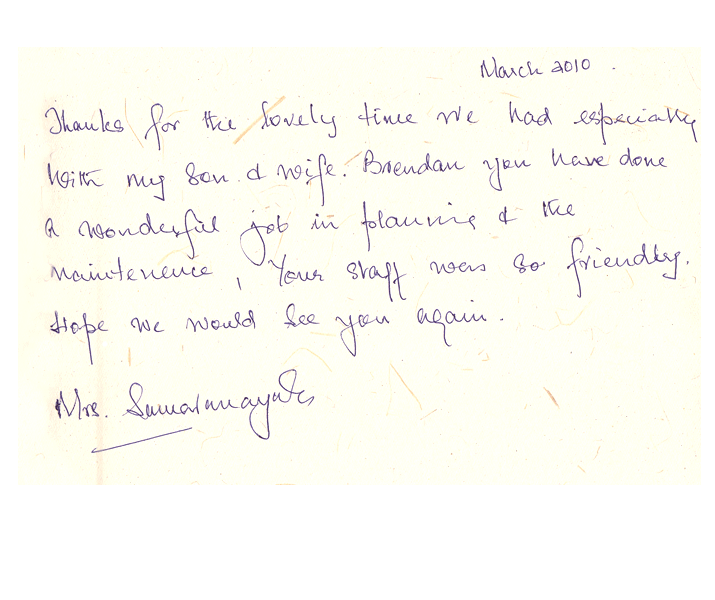 March 2010 .
Thanks for the lovely time we had especially
with my son & wife. Brendan you have done
a wonderful job in planning & the
maintenence, Your staff was so friendly.
Hope we would see you again.
Mrs.